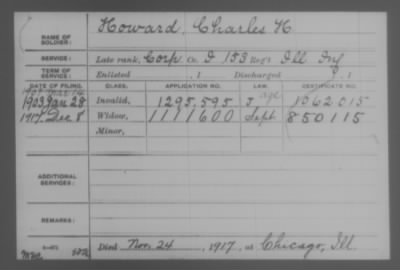 NAME OF SOLDIER: Howard, Charles H
SERVICE: Late rank, Corp Co. I 153 Reg't Ill Inf
TERM OF SERVICE: Enlisted , 1 Discharged , 1
DATE OF FILING. CLASS. APPLICATION NO. LAW. CERTIFICATE NO.
age
1903 Jan 28 Invalid, 1295,595 J 1062015
1917 Dec 8 Widow, 1111600 Sept 850115
Minor,
ADDITIONAL SERVICES:
REMARKS:
Died Nov. 24, 1917, at Chicago, Ill